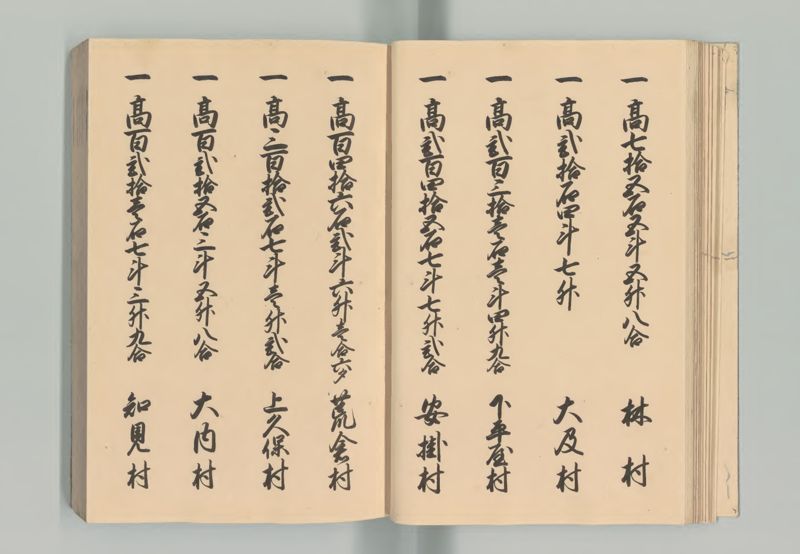 一 高七拾五石五斗五升八合 林村
一 高弐拾石四斗七升 大及村
一 高弐百三拾壱石壱斗四升九合 下平屋村
一 高弐百四拾五石七斗七升弐合 安掛村
一 高百四拾六石弐斗六升壱合六夕 荒倉村
一 高三百拾弐石七斗壱升弐合 上久保村
一 高百弐拾五石三斗五升八合 大内村
一 高百弐拾壱石七斗三升九合 知見村